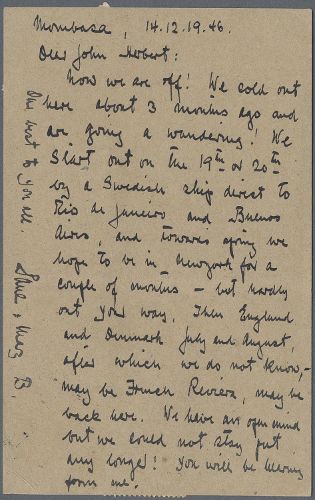 Mombasa, 14.12.1946.
Dear John Herbert:
Now we are off! We sold out
here about 3 months ago and
are going a wandering! We
start out on the 19th or 20th
by a Swedish ship direct to
Rio de Janeiro and Buenos
Aires, and towards spring we
hope to be in Newyork for a
couple of months - but hardly
out your way. Then England
and Denmark July and August,
after which we do not know, -
may be French Riviera, may be
back here. We have an open mind
but we could not stay put
any longer! You will be hearing
from me.
Our best to you all